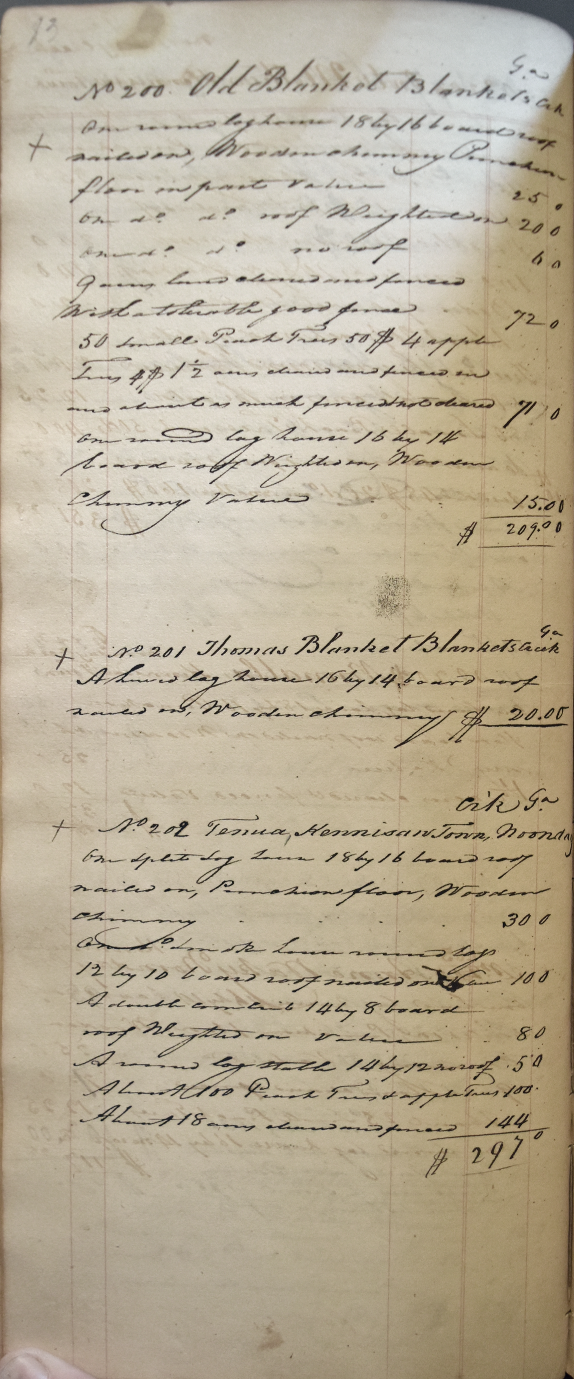 13
Ga
No 200. Old Blanket Blankets Crk
+ One round log house 18 by 16 board roof
nailed on, Wooden chimney Puncheon
floor in part Value 25 0
One do do roof Weighted on 20 0
One do do no roof 6 0
9 acres land cleared and fenced
With a tolerable good fence 72 0
50 small Peach Trees 50 $ 4 apple
Trees 4 $ 1 1/2 acres cleared and fenced in
and about as much fenced not cleared 71 0
One round log house 16 by 14
board roof Weighted on, Wooden
Chimney Value 15.00
$ 209.00
Ga
+ No 201 Thomas Blanket Blankets Creek
A hewed log house 16 by 14 board roof
nailed on, Wooden chimney $ 20.00
Crk Ga
+ No 202 Tenua, Kennisaw Town, Noonday
One split Log house 18 by 16 board roof
nailed on, Puncheon floor, Wooden
Chimney 30 0
One do smok house round logs
12 by 10 board roof nailed on 10 0
A double corn crib 14 by 8 board
roof Weighted on Value 8 0
A round log stable 14 by 12 no roof 5 0
About 100 Peach Trees & apple Trees 100.
About 18 acres cleared and fenced 144
$ 297 0